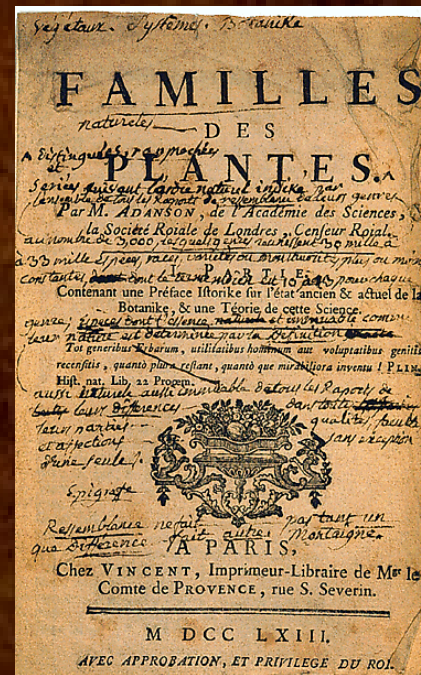 Vejetaux. Systemes. Botanike
FAMILLES
natureles
DES
PLANTES.
Distinguées, raprochées
et
Par M. ADANSON, de l'Académie des Sciences,
la Société Roiale de Londres, Censeur Roial.
au nombre de 3,000, lesquels genres réunissent 30 mille à
33 mille Espèces, races, variétés ou monstruosités, plus ou moins
constantes, dont le terme moien est 10 à 13 pour chaque
I. PARTIE.
Contenant une Préface Istorike sur l'état ancien & actuel de la
Botanike, & une Téorie de cette Science.
genre;
leur nature est determinée par la Definition
Tot generibus Erbarum, utilitatibus hominum aut voluptatibus genitis
recensitis, quantò plura restant, quantò que mirabiliora inventu ! PLIN.
Hist. nat. Lib, 22 Proœm.
aussi naturele aussi immuable de tous les Raports de
leurs Differences dans
leurs parties qualités, facultés
et affections sans exception
d'une seule.
Epigrafe
Ressemblance ne fait pas tant un
que Difference fait autre. Montaigne.
A PARIS,
Chez VINCENT, Imprimeur-Libraire de Mgr le
Comte de PROVENCE, rue S. Severin.
M DCC LXIII.
AVEC APPROBATION, ET PRIVILEGE DU ROI.